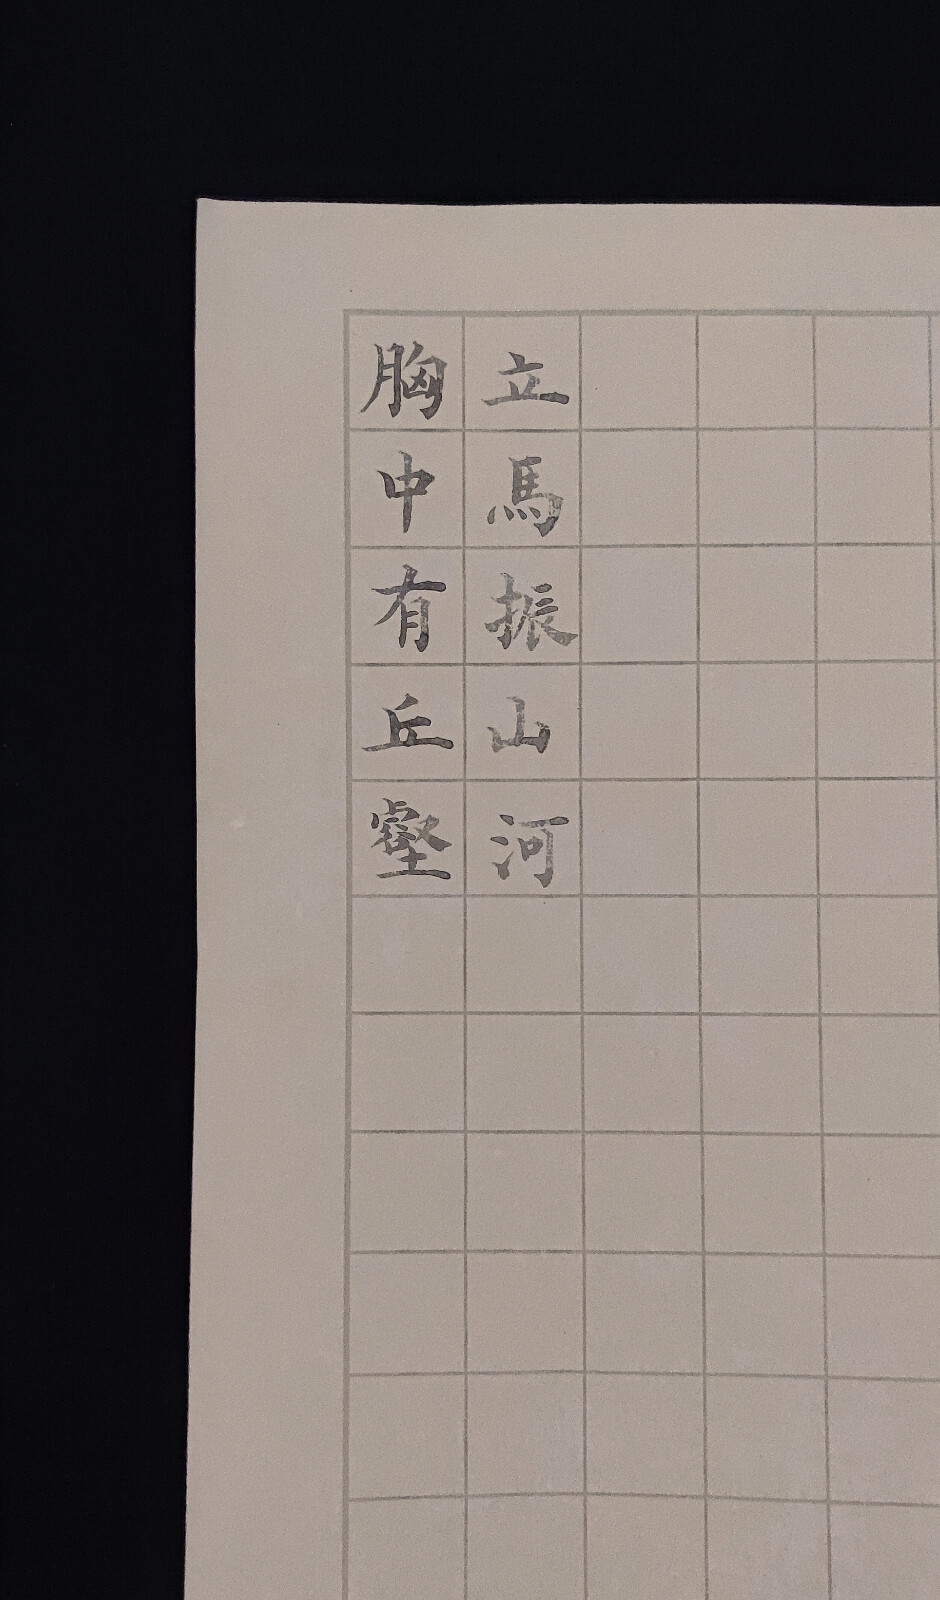 胸中有丘壑
立馬振山河